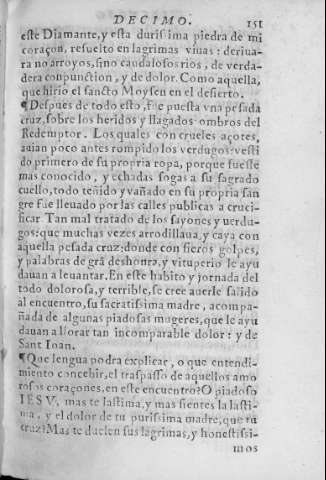 DECIMO. 151
este Diamante, y esta durissima piedra de mi
coraçon, resuelto en lagrimas viuas: deriua-
ra no arroyos, sino caudalosos rios, de verda-
dera conpunction, y de dolor. Como aquella,
que hirio el sancto Moysen en el desierto.
¶Despues de todo esto, fue puesta vna pesada
cruz, sobre los heridos y llagados ombros del
Redemptor. Los quales con crueles açotes,
auian poco antes rompido los verdugos: vesti
do primero de su propria ropa, porque fuesse
mas conocido, y echadas sogas a su sagrado
cuello, todo teñido y vañado en su propria san
gre fue lleuado por las calles publicas a cruci-
ficar Tan mal tratado de los sayones y uerdu-
gos: que muchas vezes arrodillaua, y caya con
aquella pesada cruz: donde con fieros golpes,
y palabras de grã deshonra, y vituperio le ayu
dauan a leuantar. En este habito y jornada del
todo dolorosa, y terrible, se cree auerle salido
al encuentro, su sacratissima madre, acompa-
ñada de algunas piadosas mugeres, que le ayu
dauan allorar tan incomparable dolor: y de
Sant Ioan.
¶Que lengua podra explicar, o que entendi-
miento concebir, el traspasso de aquellos amo
rosos coraçones, en este encuentro? O piadoso
IESV, mas te lastima, y mas sientes la lasti-
ma, y el dolor de tu purissima madre, que tu
cruz? Mas te duelen sus lagrimas, y honestissi-
mos